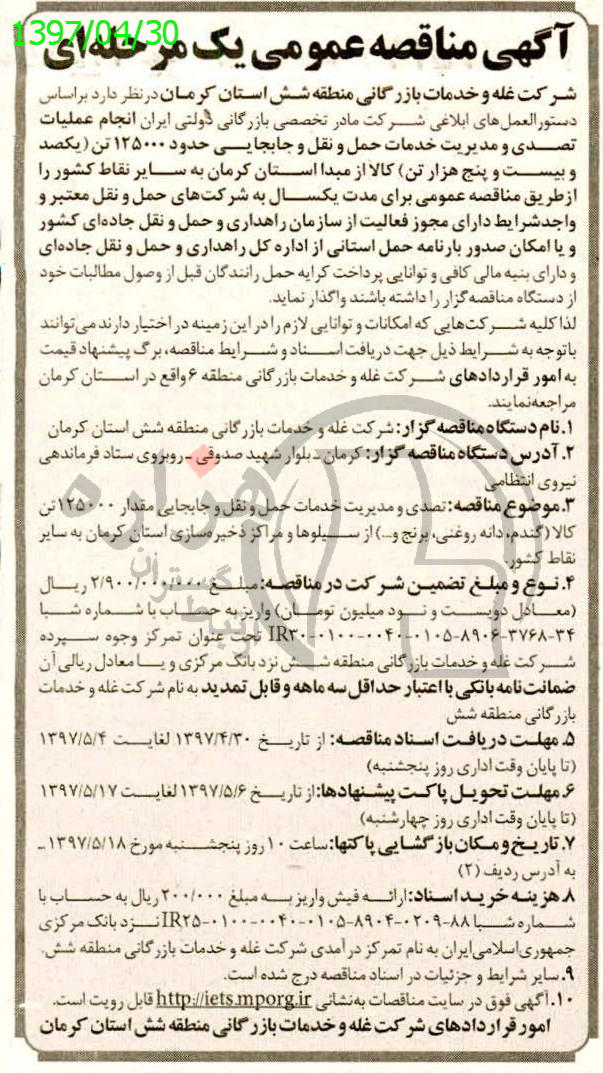 1397/04/30
آگهی مناقصه عمومی یک مرحله‌ای
شرکت غله و خدمات بازرگانی منطقه شش استان کرمان در نظر دارد براساس
دستورالعمل‌های ابلاغی شرکت مادر تخصصی بازرگانی دولتی ایران انجام عملیات
تصدی و مدیریت خدمات حمل و نقل و جابجایی حدود ۱۲۵۰۰۰ تن (یکصد
و بیست و پنج هزار تن) کالا از مبدا استان کرمان به سایر نقاط کشور را
از طریق مناقصه عمومی برای مدت یکسال به شرکت‌های حمل و نقل معتبر و
واجد شرایط دارای مجوز فعالیت از سازمان راهداری و حمل و نقل جاده‌ای کشور
و یا امکان صدور بارنامه حمل استانی از اداره کل راهداری و حمل و نقل جاده‌ای
و دارای بنیه مالی کافی و توانایی پرداخت کرایه حمل رانندگان قبل از وصول مطالبات خود
از دستگاه مناقصه گزار را داشته باشند واگذار نماید.
لذا کلیه شرکت‌هایی که امکانات و توانایی لازم را در این زمینه در اختیار دارند می‌توانند
با توجه به شرایط ذیل جهت دریافت اسناد و شرایط مناقصه، برگ پیشنهاد قیمت
به امور قراردادهای شرکت غله و خدمات بازرگانی منطقه ۶ واقع در استان کرمان
مراجعه نمایند.
۱. نام دستگاه مناقصه گزار: شرکت غله و خدمات بازرگانی منطقه شش استان کرمان
۲. آدرس دستگاه مناقصه گزار: کرمان ـ بلوار شهید صدوقی ـ روبروی ستاد فرماندهی
نیروی انتظامی
۳. موضوع مناقصه: تصدی و مدیریت خدمات حمل و نقل و جابجایی مقدار ۱۲۵۰۰۰ تن
کالا (گندم، دانه روغنی، برنج و...) از سیلوها و مراکز ذخیره‌سازی استان کرمان به سایر
نقاط کشور.
۴. نوع و مبلغ تضمین شرکت در مناقصه: مبلغ ۲/۹۰۰/۰۰۰/۰۰۰ ریال
(معادل دویست و نود میلیون تومان) واریز به حساب با شماره شبا
IR۳۰-۰۱۰۰-۰۰۴۰-۰۱۰۵-۸۹۰۶-۳۷۶۸-۳۴ تحت عنوان تمرکز وجوه سپرده
شرکت غله و خدمات بازرگانی منطقه شش نزد بانک مرکزی و یا معادل ریالی آن
ضمانت نامه بانکی با اعتبار حداقل سه ماهه و قابل تمدید به نام شرکت غله و خدمات
بازرگانی منطقه شش
۵. مهلت دریافت اسناد مناقصه: از تاریخ ۱۳۹۷/۴/۳۰ لغایت ۱۳۹۷/۵/۴
(تا پایان وقت اداری روز پنجشنبه)
۶. مهلت تحویل پاکت پیشنهادها: از تاریخ ۱۳۹۷/۵/۶ لغایت ۱۳۹۷/۵/۱۷
(تا پایان وقت اداری روز چهارشنبه)
۷. تاریخ و مکان بازگشایی پاکتها: ساعت ۱۰ روز پنجشنبه مورخ ۱۳۹۷/۵/۱۸ ـ
به آدرس ردیف (۲)
۸. هزینه خرید اسناد: ارائه فیش واریز به مبلغ ۲۰۰/۰۰۰ ریال به حساب با
شماره شبا IR۲۵-۰۱۰۰-۰۰۴۰-۰۱۰۵-۸۹۰۴-۰۲۰۹-۸۸ نزد بانک مرکزی
جمهوری اسلامی ایران به نام تمرکز درآمدی شرکت غله و خدمات بازرگانی منطقه شش.
۹. سایر شرایط و جزئیات در اسناد مناقصه درج شده است.
۱۰. آگهی فوق در سایت مناقصات به نشانی http://iets.mporg.ir قابل رویت است.
امور قراردادهای شرکت غله و خدمات بازرگانی منطقه شش استان کرمان